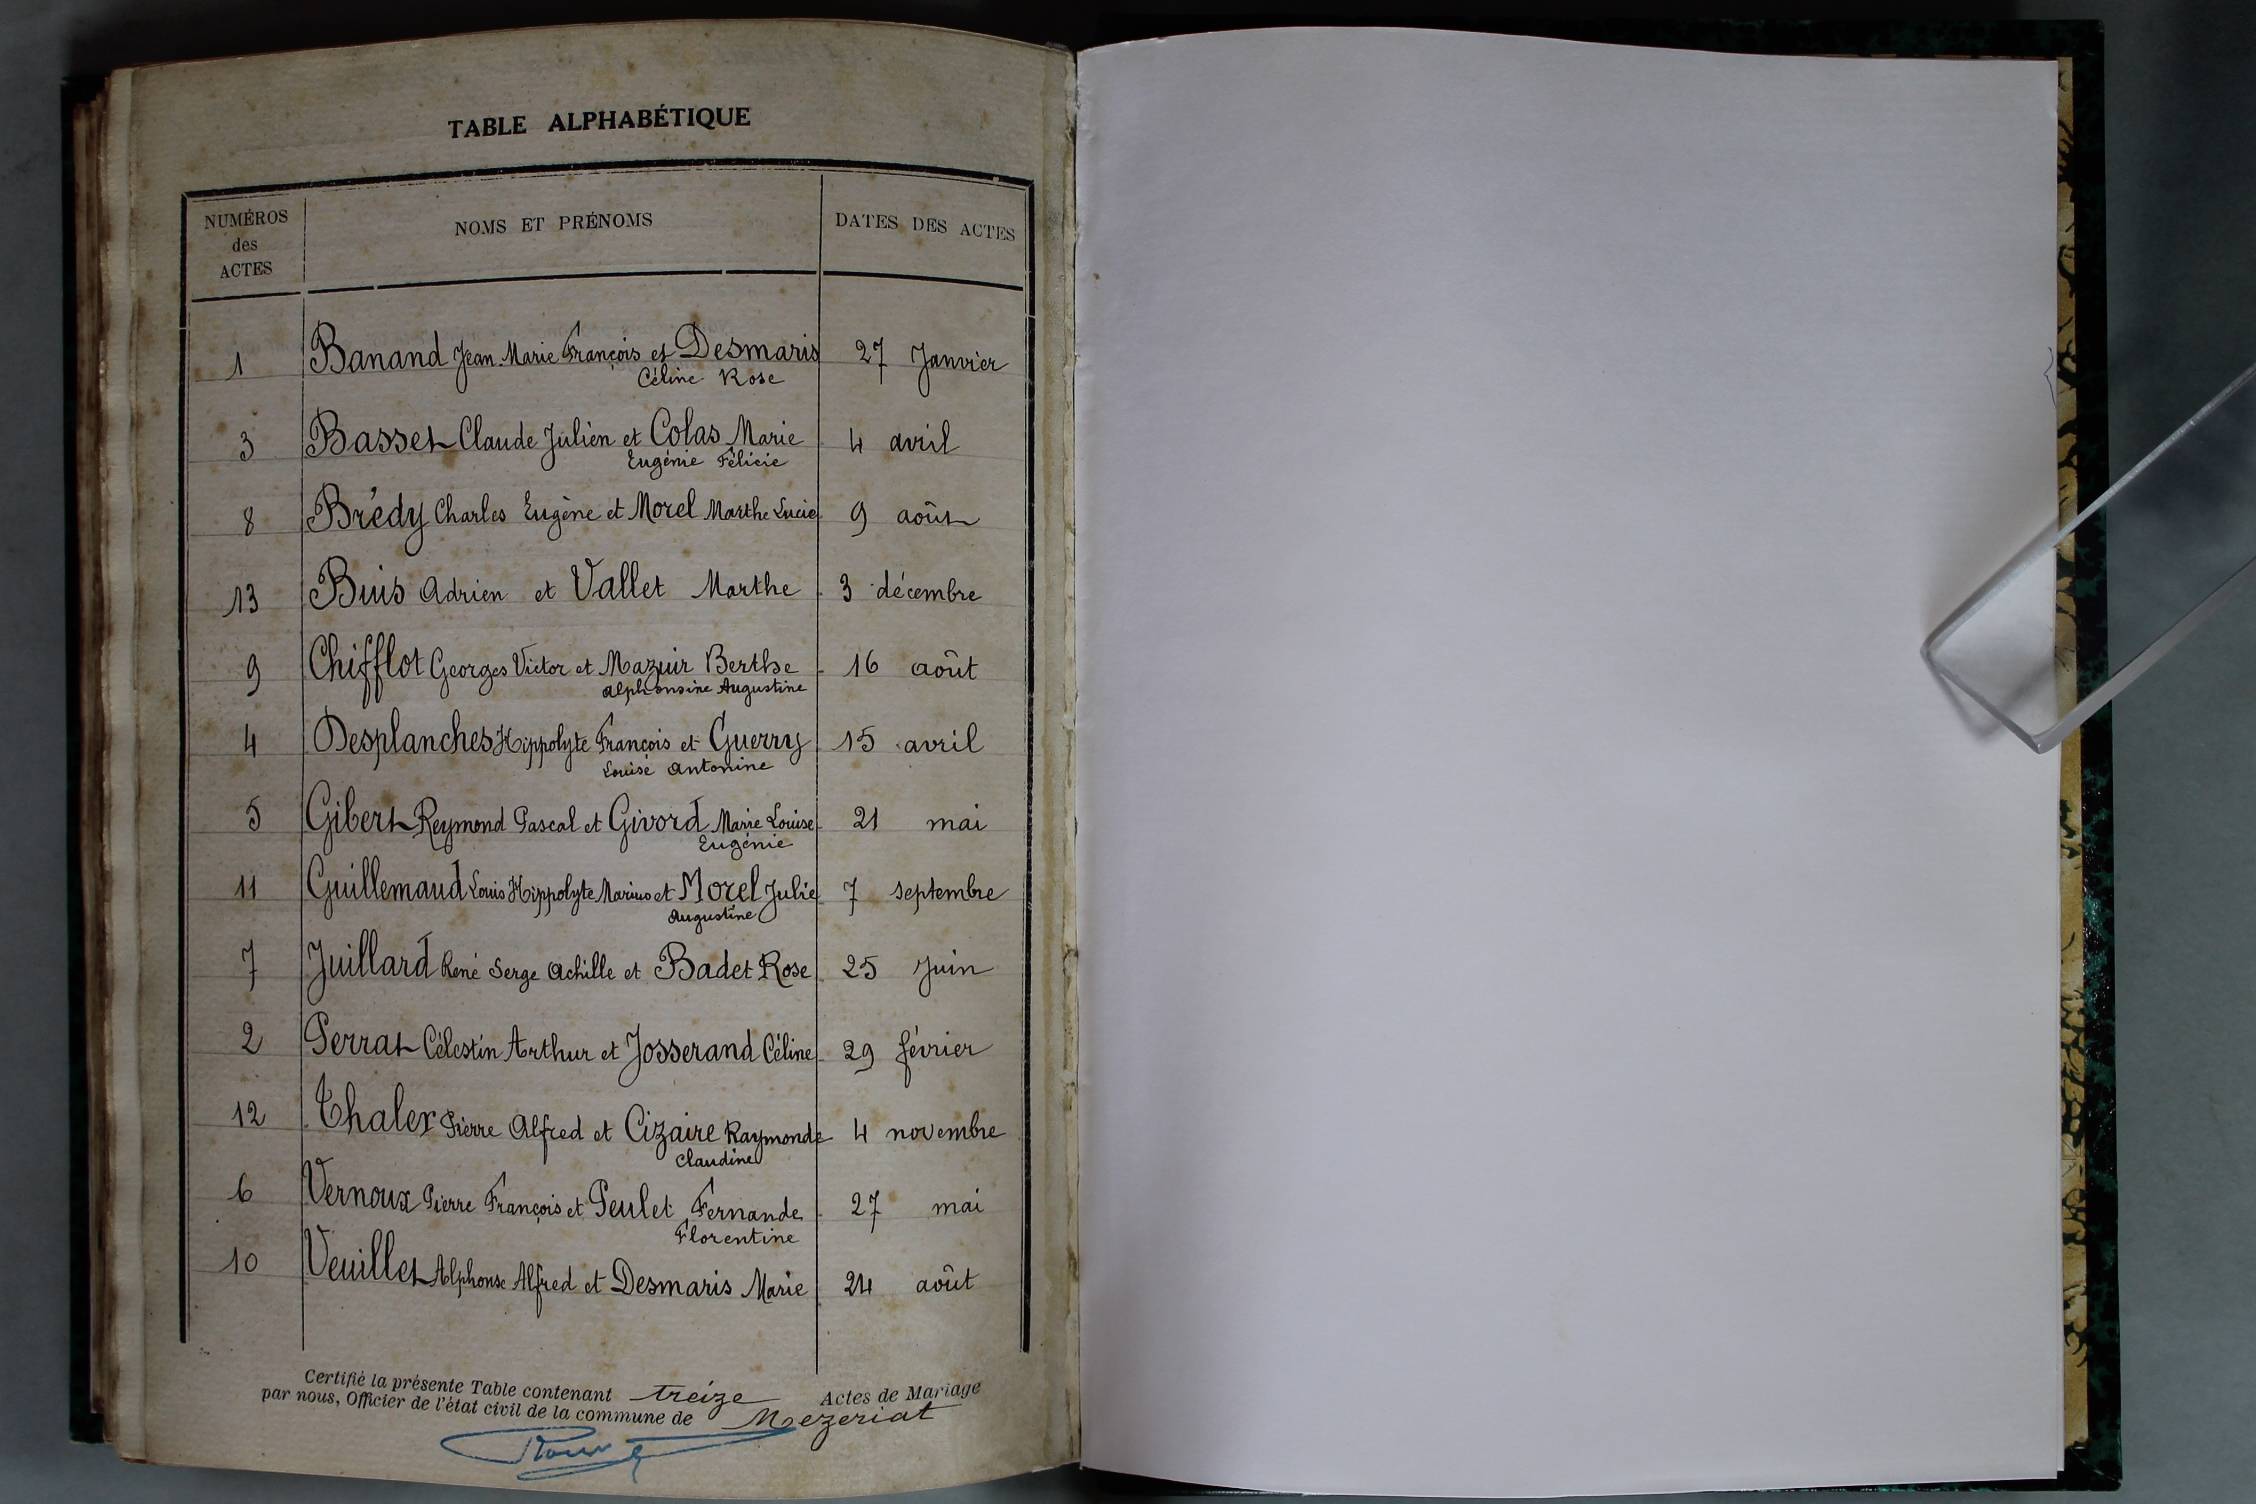 TABLE ALPHABÉTIQUE
NUMÉROS des ACTES NOMS ET PRÉNOMS DATES DES ACTES
1 Banand Jean Marie François et Desmaris 27 Janvier
Céline Rose
3 Basset Claude Julien et Colas Marie 4 avril
Eugénie Félicie
8 Brédy Charles Eugène et Morel Marthe Lucie 9 août
13 Buis Adrien et Vallet Marthe 3 décembre
9 Chifflot Georges Victor et Mazuir Berthe 16 août
Alphonsine Augustine
4 Desplanches Hippolyte François et Guerry 15 avril
Louise Antonine
5 Gibert Reymond Pascal et Givord Marie Louise 21 mai
Eugénie
11 Guillemaud Louis Hippolyte Marius et Morel Julie 7 septembre
Augustine
7 Juillard René Serge Achille et Badet Rose 25 Juin
2 Perrat Célestin Arthur et Josserand Céline 29 février
12 Thaler Pierre Alfred et Cizaire Raymonde 4 novembre
Claudine
6 Vernoux Pierre François et Peulet Fernande 27 mai
Florentine
10 Veuillet Alphonse Alfred et Desmaris Marie 24 août
Certifié la présente Table contenant treize Actes de Mariage
par nous, Officier de l'état civil de la commune de Mezeriat